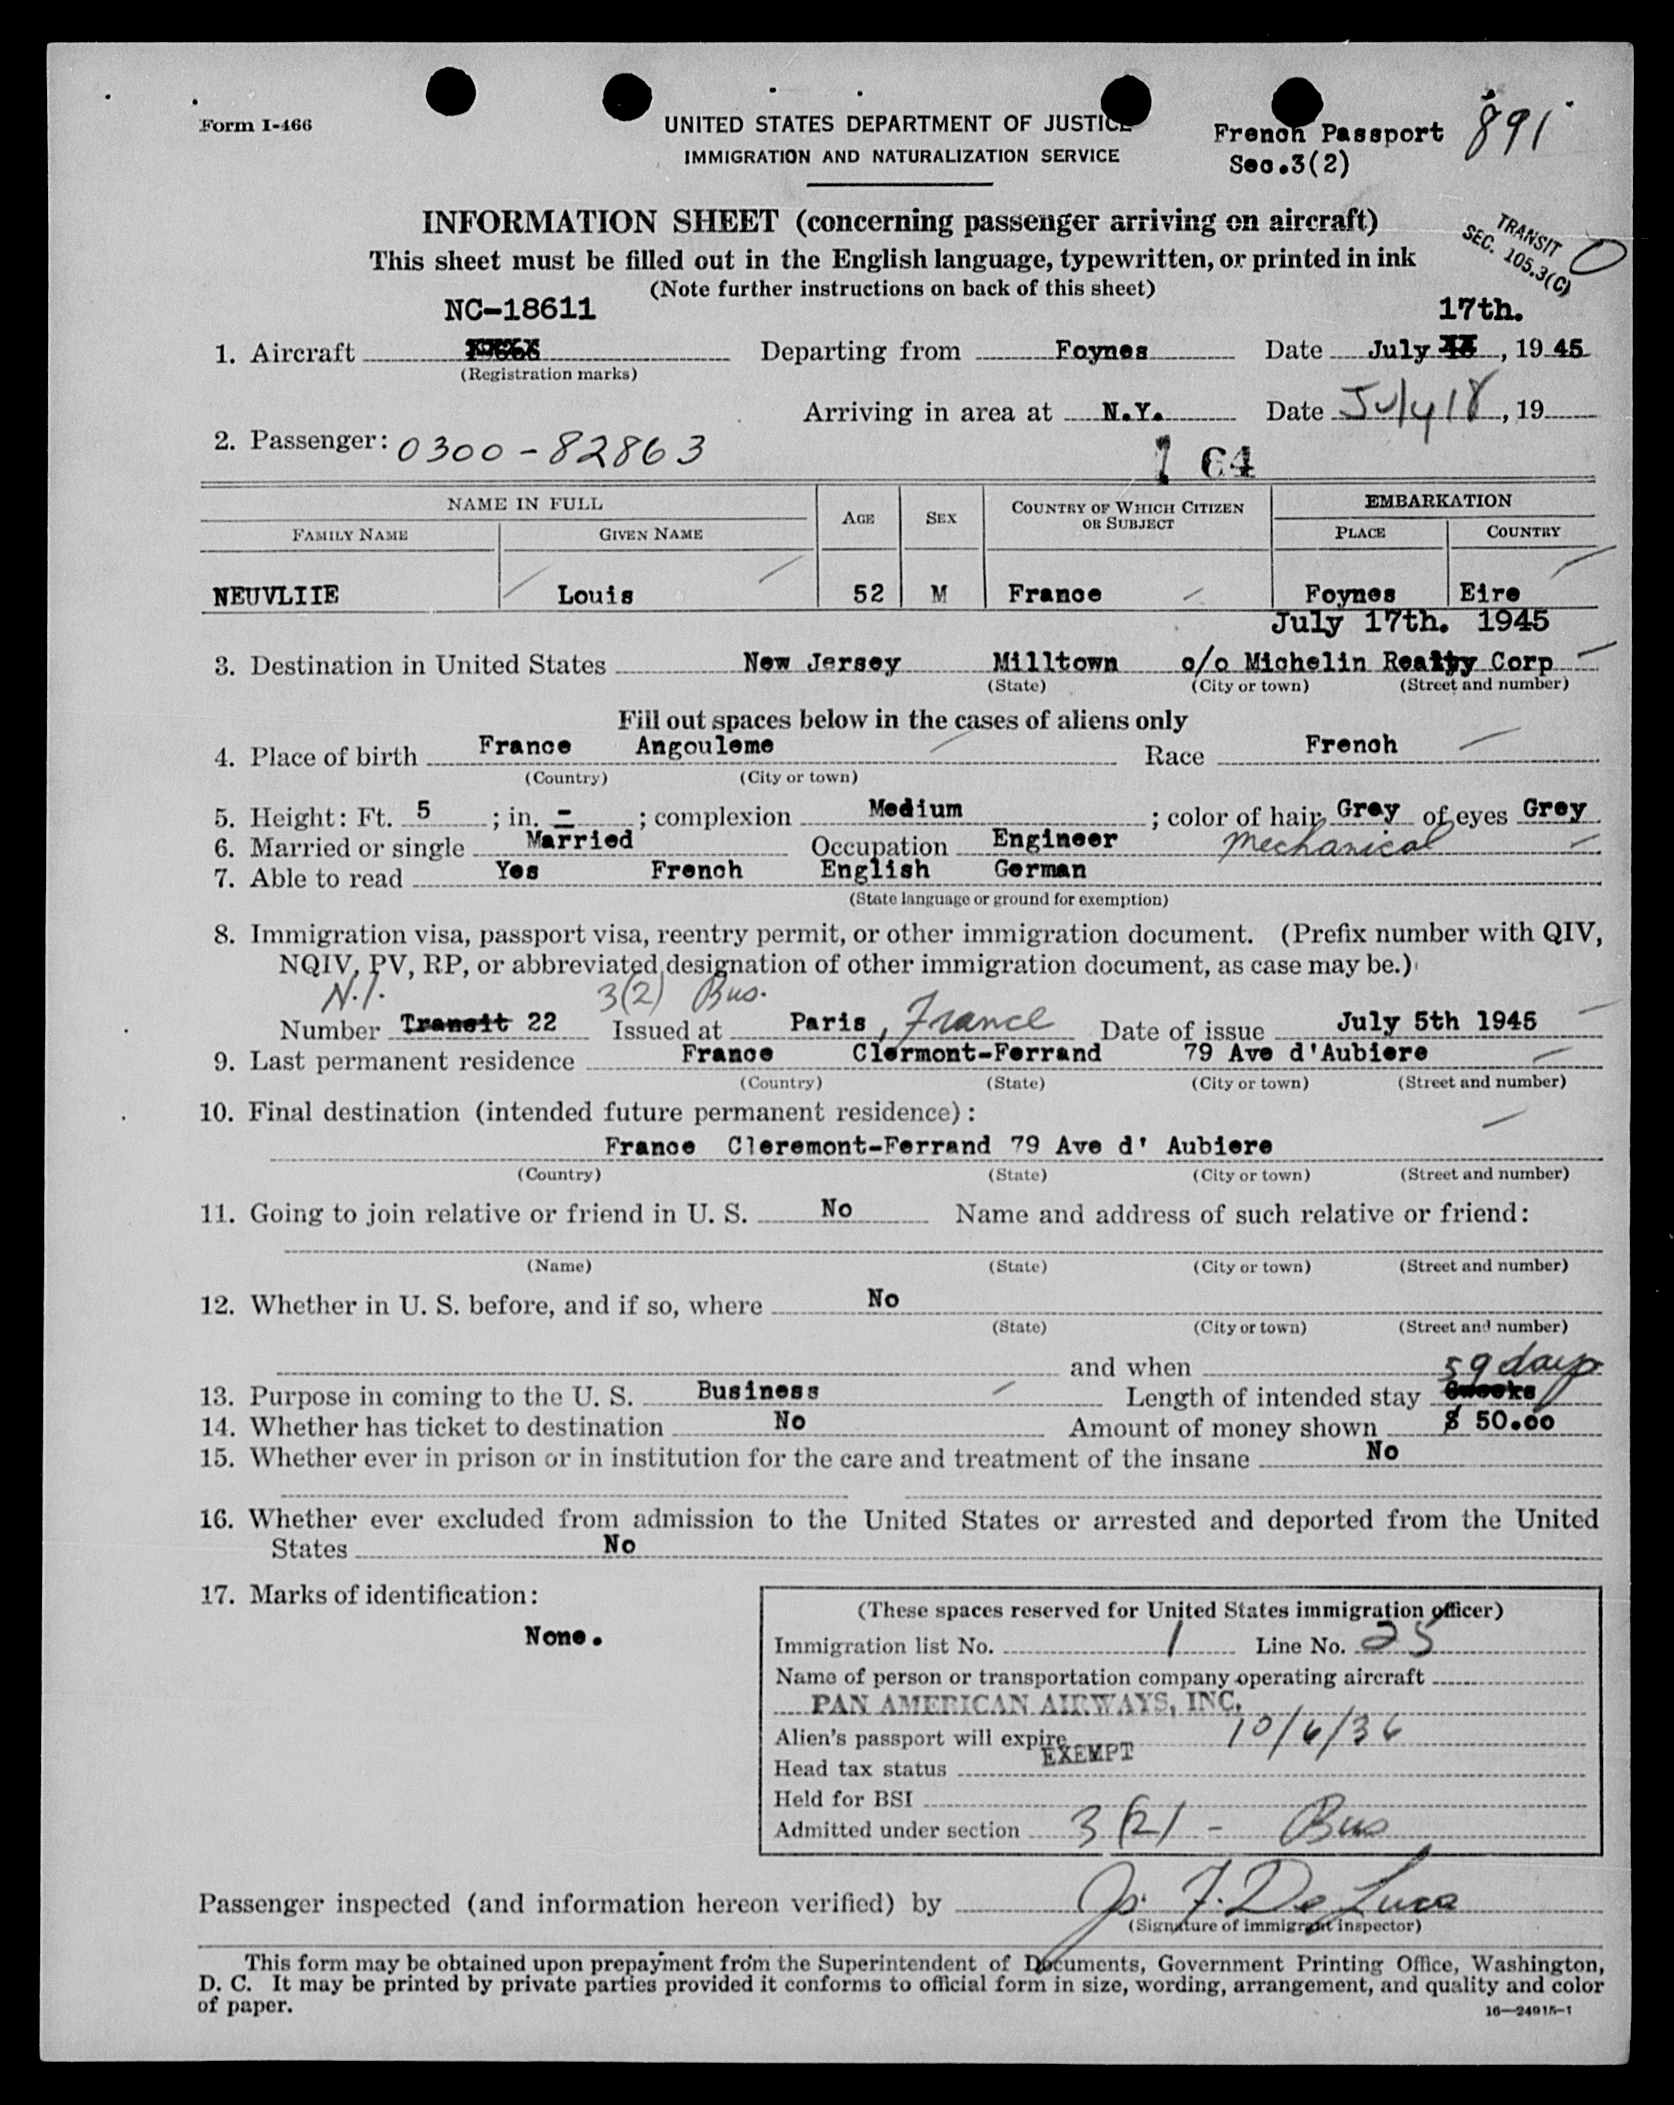 Form I-466
UNITED STATES DEPARTMENT OF JUSTICE
IMMIGRATION AND NATURALIZATION SERVICE
French Passport
Sec.3(2)
891
INFORMATION SHEET (concerning passenger arriving on aircraft)
TRANSIT
SEC. 105.3(C)
0
This sheet must be filled out in the English language, typewritten, or printed in ink
(Note further instructions on back of this sheet)
NC-18611 17th.
1. Aircraft Departing from Foynes Date July , 19 45
(Registration marks)
Arriving in area at N.Y. Date July 18, 19
2. Passenger: 0300-82863
1 64
NAME IN FULL AGE SEX COUNTRY OF WHICH CITIZEN OR SUBJECT EMBARKATION
FAMILY NAME GIVEN NAME PLACE COUNTRY
NEUVLIIE Louis 52 M France Foynes Eire
July 17th. 1945
3. Destination in United States New Jersey Milltown c/o Michelin Realty Corp
(State) (City or town) (Street and number)
Fill out spaces below in the cases of aliens only
4. Place of birth France Angouleme Race French
(Country) (City or town)
5. Height: Ft. 5 ; in. - ; complexion Medium ; color of hair Grey of eyes Grey
6. Married or single Married Occupation Engineer Mechanical
7. Able to read Yes French English German
(State language or ground for exemption)
8. Immigration visa, passport visa, reentry permit, or other immigration document. (Prefix number with QIV,
NQIV, PV, RP, or abbreviated designation of other immigration document, as case may be.)
N.I. 3(2) Bus.
Number Transit 22 Issued at Paris, France Date of issue July 5th 1945
9. Last permanent residence France Clermont-Ferrand 79 Ave d'Aubiere
(Country) (State) (City or town) (Street and number)
10. Final destination (intended future permanent residence):
France Cleremont-Ferrand 79 Ave d' Aubiere
(Country) (State) (City or town) (Street and number)
11. Going to join relative or friend in U. S. No Name and address of such relative or friend:
(Name) (State) (City or town) (Street and number)
12. Whether in U. S. before, and if so, where No
(State) (City or town) (Street and number)
and when
59 days
13. Purpose in coming to the U. S. Business Length of intended stay 6weeks
14. Whether has ticket to destination No Amount of money shown $ 50.00
15. Whether ever in prison or in institution for the care and treatment of the insane No
16. Whether ever excluded from admission to the United States or arrested and deported from the United
States No
17. Marks of identification:
None.
(These spaces reserved for United States immigration officer)
Immigration list No. 1 Line No. 25
Name of person or transportation company operating aircraft
PAN AMERICAN AIRWAYS, INC.
Alien's passport will expire 10/6/36
Head tax status EXEMPT
Held for BSI
Admitted under section 3(2) - Bus
Passenger inspected (and information hereon verified) by Jo. F. De Luca
(Signature of immigrant inspector)
This form may be obtained upon prepayment from the Superintendent of Documents, Government Printing Office, Washington,
D. C. It may be printed by private parties provided it conforms to official form in size, wording, arrangement, and quality and color
of paper.
16—24915-1